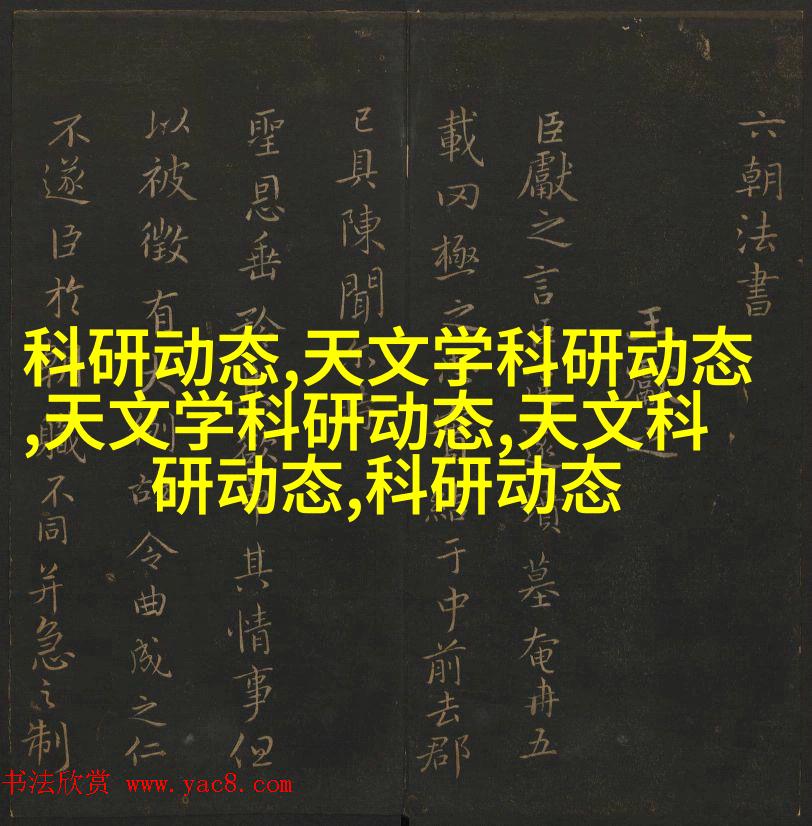 六朝法書
王獻之
臣獻之言臣遂墳墓奄冉五
載罔極之於中前去郡
已具陳聞不
聖恩垂其情事但
以被徵有大故令曲成之仁
不遂臣於職不同并急之制
科研动态,天文学科研动态
,天文学科研动态,天文科
研动态,科研动态
书法欣赏 www.yac8.com